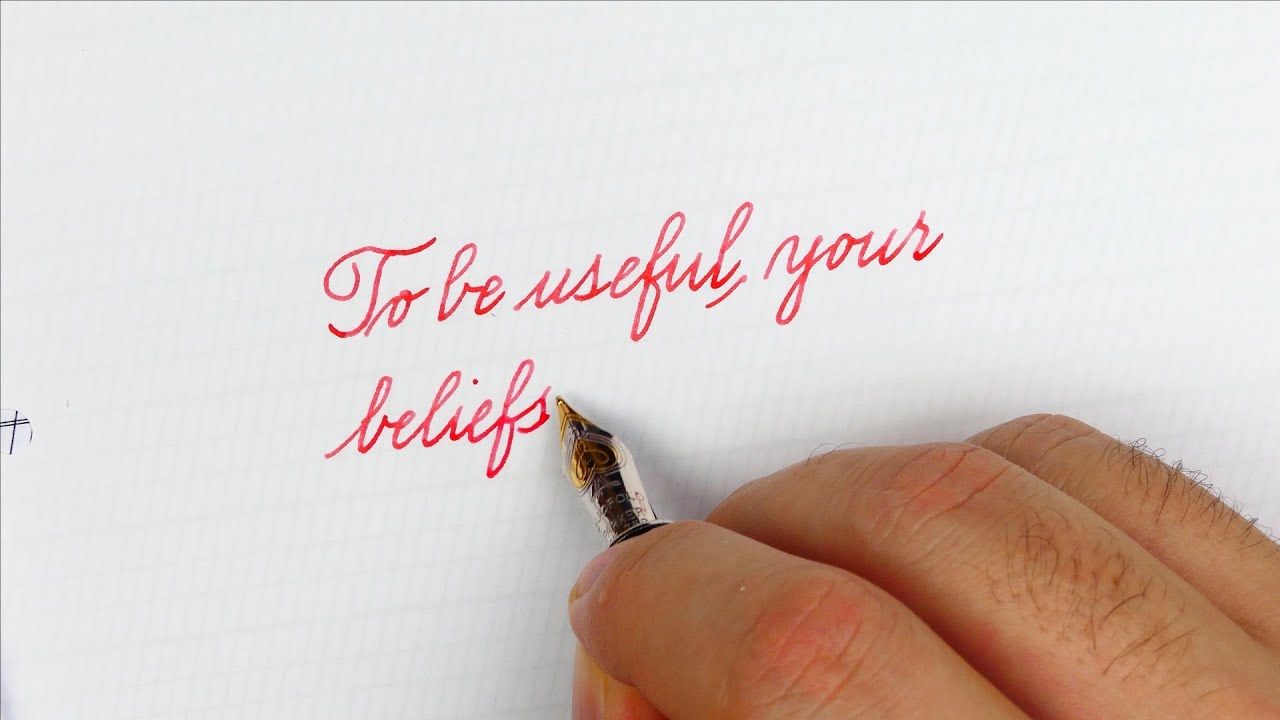 To be useful, your
beliefs